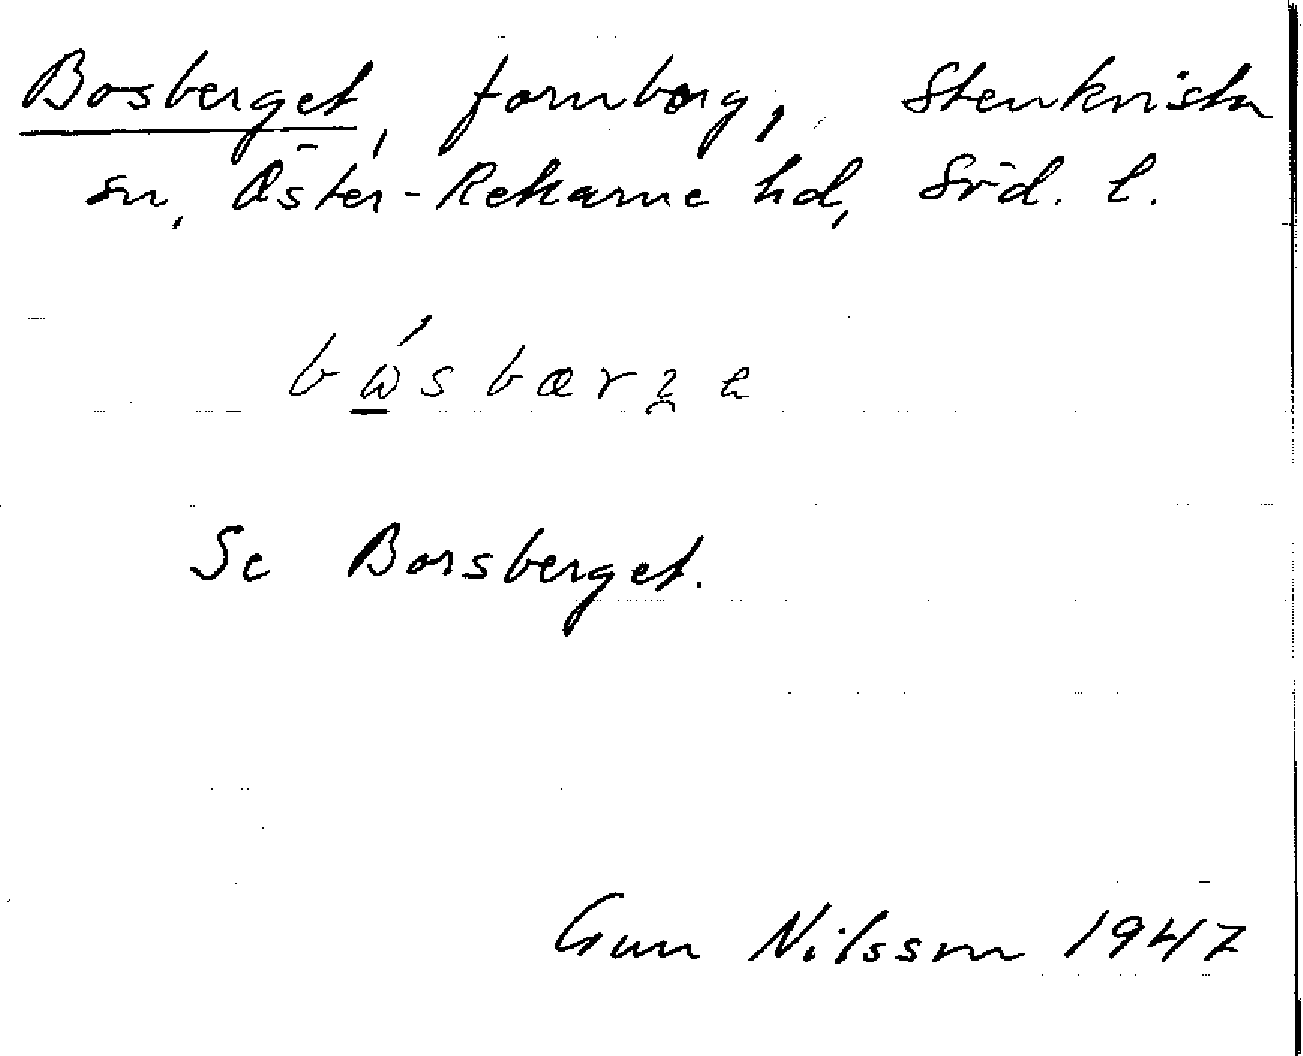 Bosberget, fornborg, Stenkvista
sn, Öster-Rekarne hd, Söd. l.
Se Borsberget.
Gun Nilsson 1947